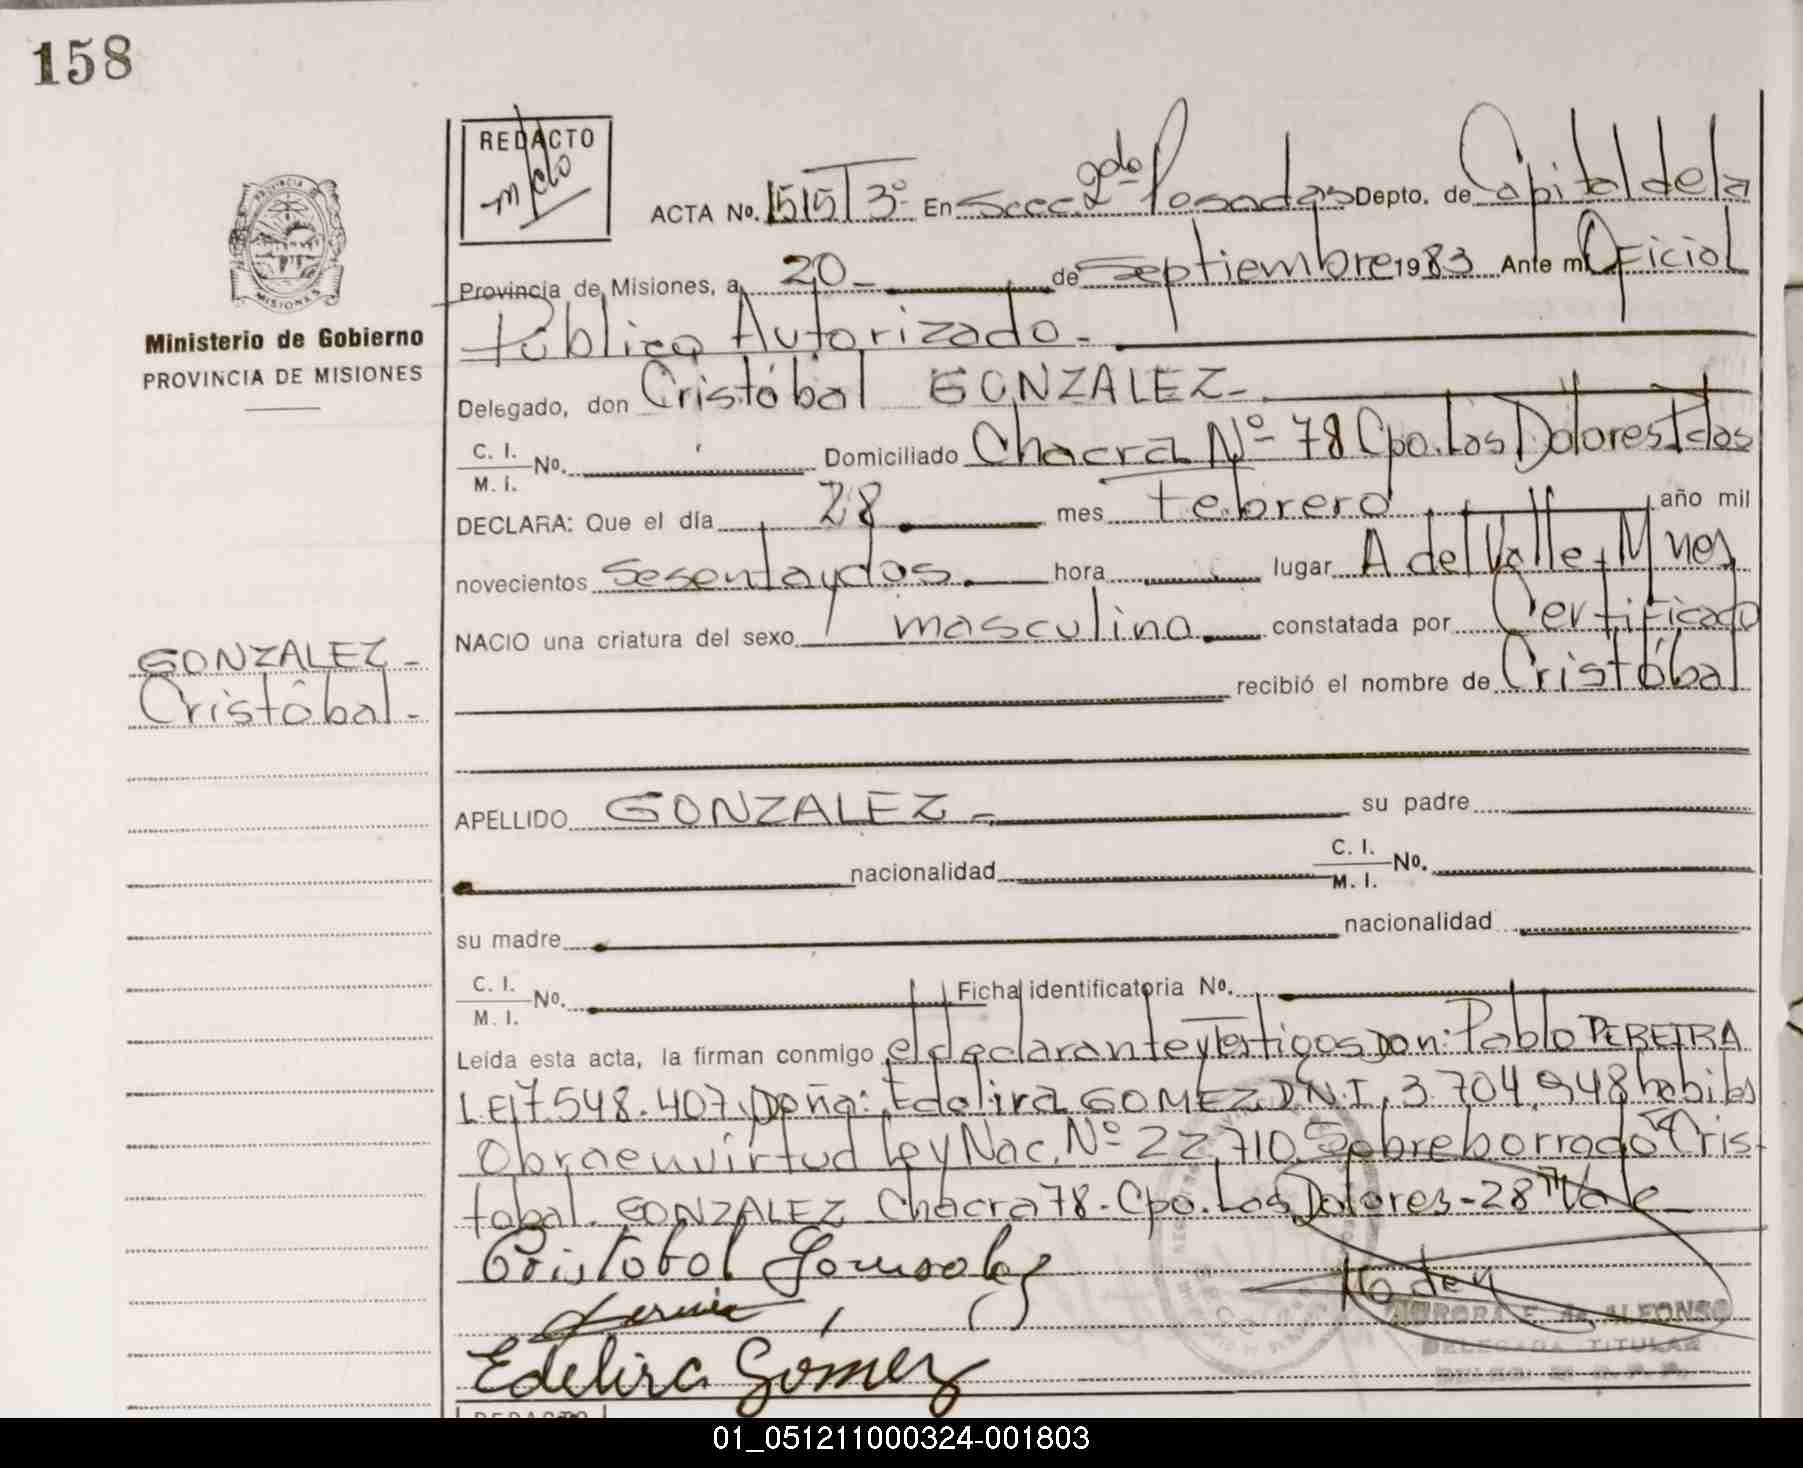 158
REDACTO
ACTA No. 1515 T 3º En Secc. 2da Posadas Depto. de Capital de la
Provincia de Misiones, a 20 de Septiembre 1983 Ante mi Oficial
Público Autorizado.
Ministerio de Gobierno
PROVINCIA DE MISIONES
Delegado, don Cristóbal GONZALEZ
C. I.
M. I. No. Domiciliado Chacra Nº 78 Cpo. Las Dolores Pdas
DECLARA: Que el día 28 mes Febrero año mil
novecientos Sesenta y dos hora lugar A del Valle, Mnes
NACIO una criatura del sexo masculino constatada por Certificado
GONZALEZ
Cristóbal
recibió el nombre de Cristóbal
APELLIDO GONZALEZ su padre
nacionalidad C. I.
M. I. No.
su madre nacionalidad
C. I.
M. I. No. Ficha identificatoria No.
Leída esta acta, la firman conmigo el declarante y Testigos Don: Pablo PEREIRA
L.E. 7.548.407. Doña: Edelira GOMEZ D.N.I. 3.704.948 habiles
Obra en virtud Ley Nac. Nº 22.710. Sobreborrado "Cris-
tobal. GONZALEZ Chacra 78. Cpo. Las Dolores - 28" Vale
Cristobal Gonsalez
Edelira Gomez
AURORA E. de ALFONSO
DELEGADA TITULAR
REDACTO
01_051211000324-001803